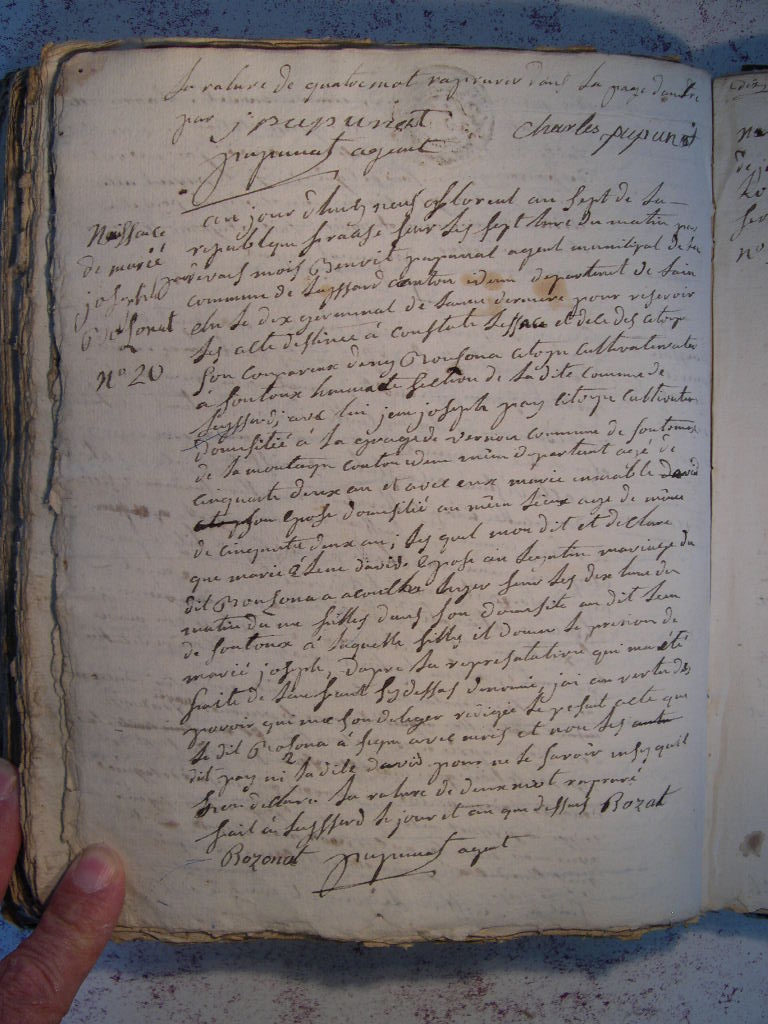 la rature de quatre mot raprouver dans la page dautre
par j pupunat
Charles pupunat
pupunat agent
Naissace
de marié
joseph
Bosonat
n° 20
au jour d'huis neuf floreal au sept de la
republique fransaise heur les sept heure du matin par
devans mois Benoit pupunat agent municipal de la
commune de Leyssard canton idem departement de lain
elu le dix germinal de laneé derniere pour reservoir
les acte destinee à constater et des citoye
son conpareux deny Bousona citoye cultivateur
à Soutoux section de la dite comune de
Leyssard; avec lui jean joseph pary citoye cultivateur
domisilié à la grange de vernou commune de Soutoux
de la montagne canton idem même departent agé de
cinquante deux an et avec eux marie david
son epose domisilié au même lieux age de même
de cinquante deux an; les quel mon dit et declare
que marie élene david epose an legatime mariage du
dit Bousona a acouchee hyer heur les dix heure du
matin du ne filles dans son domisile au dit lieu
de Soutoux à laquelle filles il donner le prenon de
marié joseph, dapre la represtation qui ma été
faite de lau fant sy dessus denomé, jai an vertu des
pavoir qui me son deleguer redigée le presat acte que
le dit Bosona à signe avec mois et non les
dit pary ni la dite david pour ne le savoir insy quil
declare la rature de deux mot raprové
fait à Leyssard le jour et an que dessus Bozat
Bozonat pupunat agent